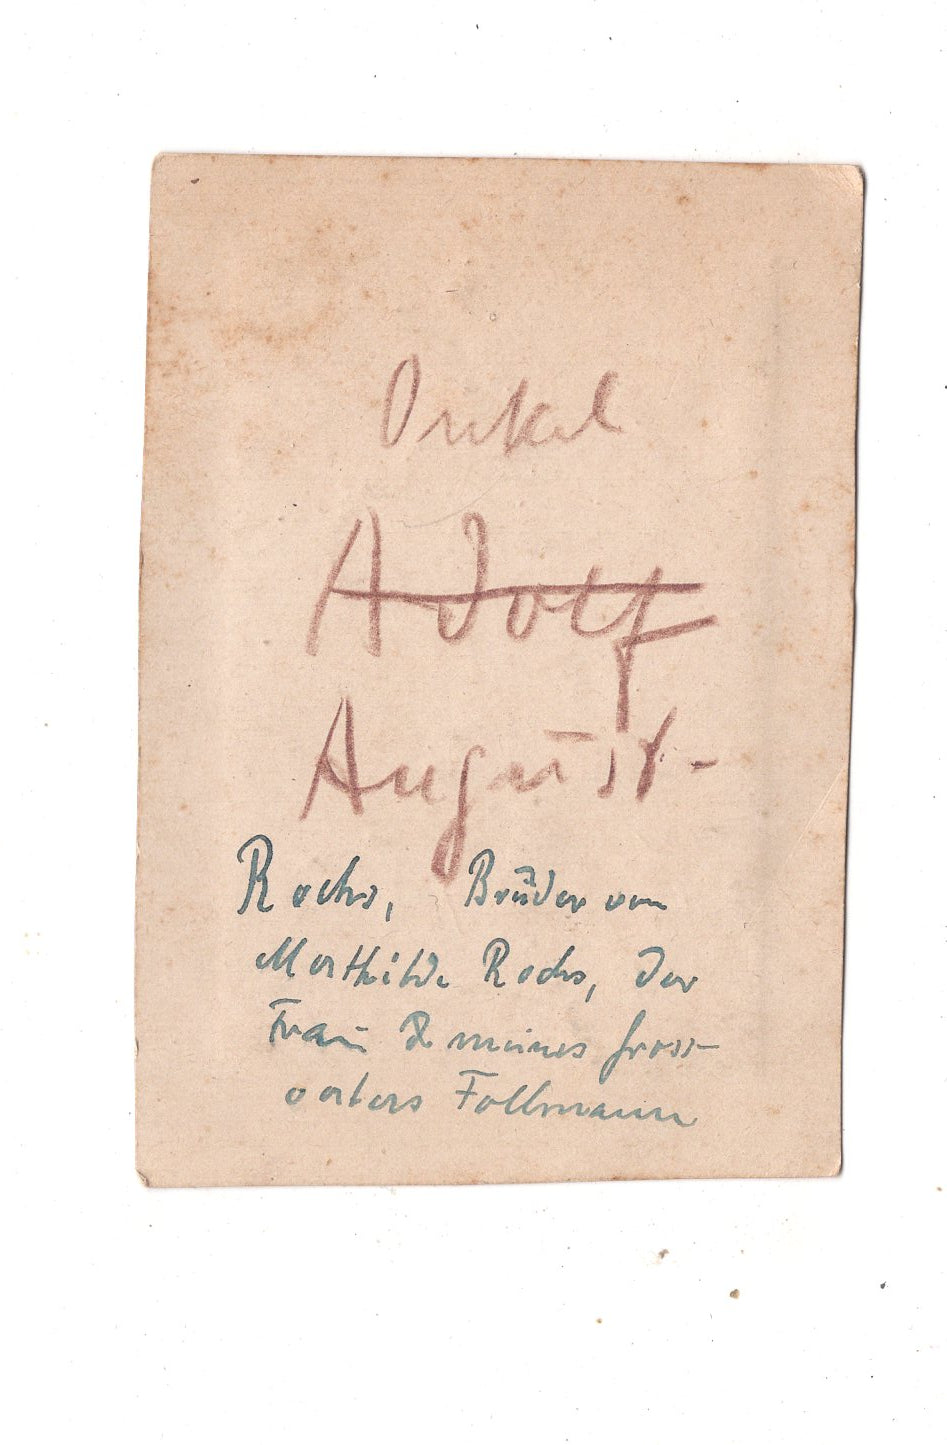 Onkel
Adolf
August -
Rochs, Bruder von
Mathilde Rochs, der
Frau meines Gross-
vaters Follmann